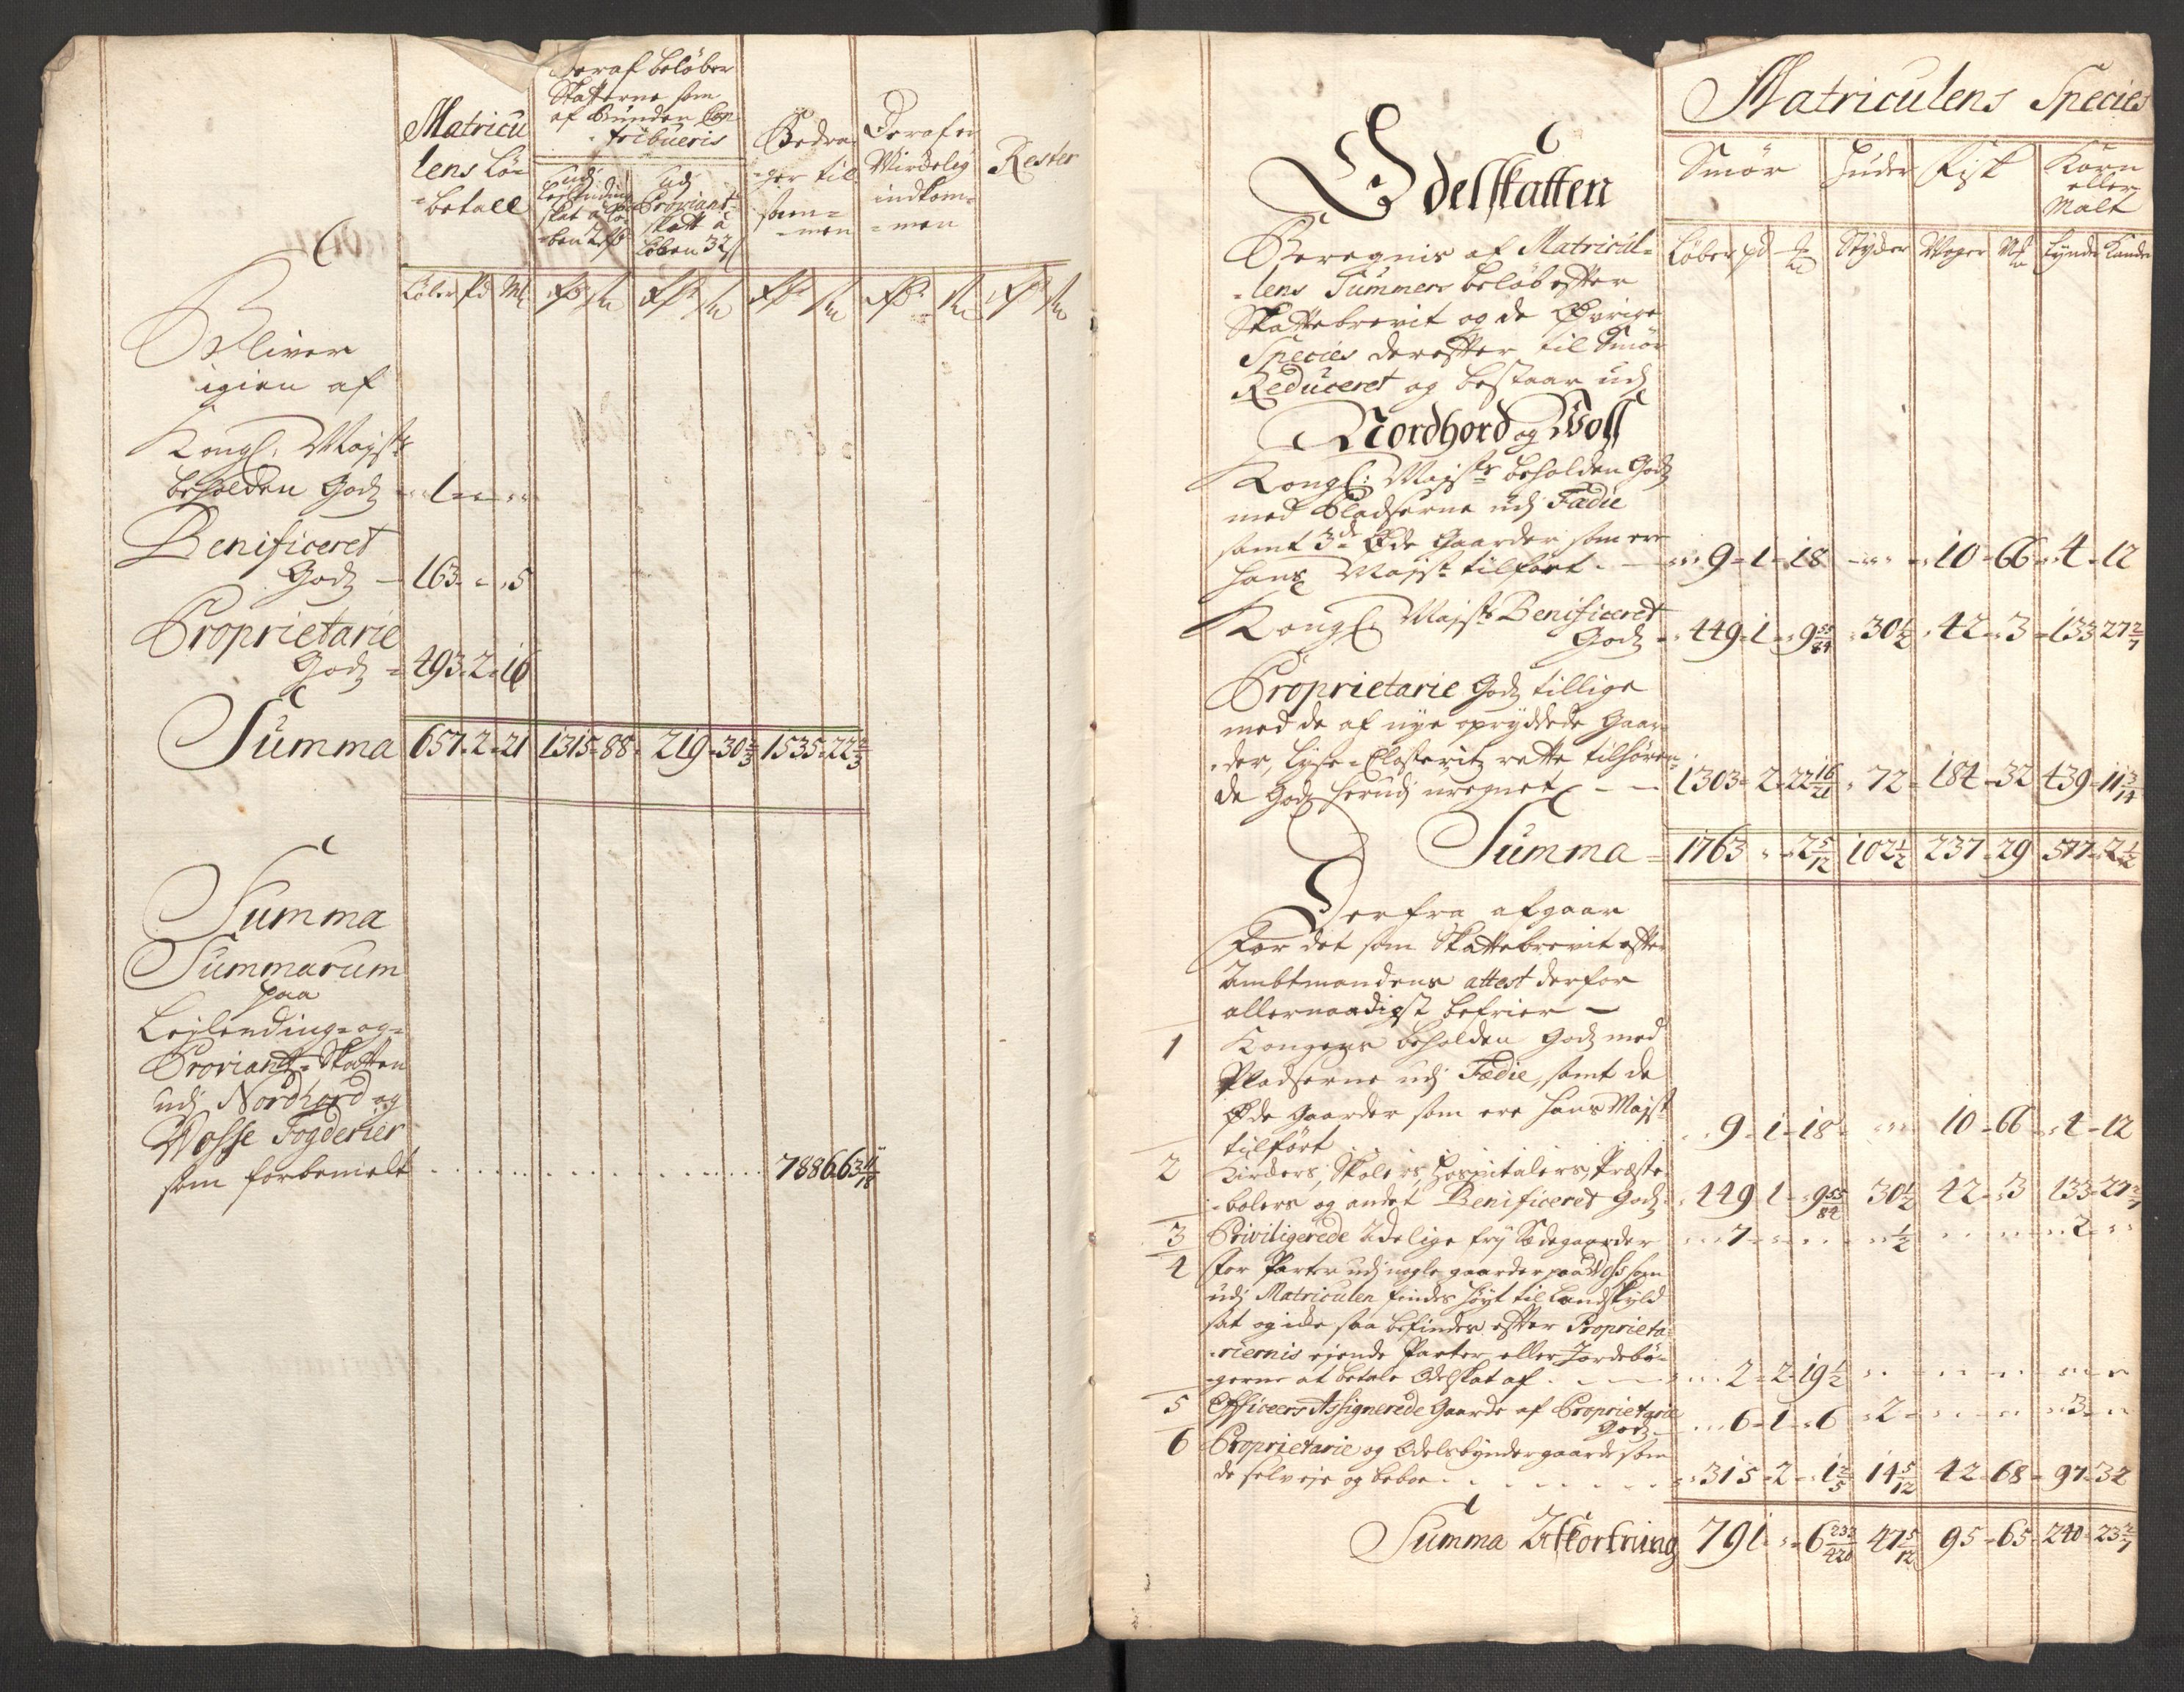 Matricu
lens Lø=
=betall
Deraf beløber
Skatterne som
af Bønden Con
=tribueris
udj
Leilending
skat à Lø
=ben 2 Rdr
udj
Proviant
skatt à
Løben 32 s
Bedra=
=ger til
sam=
=men
Deraf er
Virdelig
indkom=
=men
Rester
Løber Pd Mk
Bliver
igien af
Kongl: Majsts
beholden Godz - 1 - -
Benificeret
Godz - 163 - - 5
Proprietarie
Godz = 493 - 2 - 16
Summa 657 - 2 - 21 1315 - 88 - 219 - 30 2/3 1535 - 22 2/3
Summa
Summarum
paa
Lejlending= og=
Proviantt= Skatten
udj Nordhord og
Wosse Fogderier
som forbemelt 7886 63 11/18
Matriculens Species
Odelskatten
Smør Huder Fisk Korn
eller
Malt
Løber pd Støder Woger Tynder Kande
Beregnis af Matricul=
=lens Summers beløb efter
Skattebrevit og de Øvrige
Species derefter til Smør
Reduceret og bestaar udj
Nordhord og Woss
Kongl: Majsts beholden Godz
med Pladserne udj Fædie
samt 3de Øde Gaarder som ere
hans Majst tilført - 9 - 1 - 18 - 10 - 66 - 4 - 12
Kongl: Majsts Benificeret
Godz - 449 - 1 - 9 55/84 30 1/2 42 - 3 - 133 27 2/7
Proprietarie Godz tillige
med de af nye opryddede Gaar=
=der, Lyse= Closteritz rette tilhøren=
de Godz herudj uregnet - 1303 - 2 - 22 16/21 72 - 184 - 32 439 - 11 3/14
Summa = 1763 - 2 5/12 102 1/2 237 - 29 577 - 2 1/2
Derfra afgaar
For det som Skattebrevit efter
Ambtmandens attest derfor
allernaadigst befrier -
1 Kongens beholden Godz med
Pladserne udj Fædie, samt de
Øde gaarder som ere hans Majst
tilført 9 - 1 - 18 10 - 66 - 4 - 12
2 Kirchers, Skolers, Hospitalers, Præste
=bolers og andet Benificeret Godz - 449 - 1 - 9 55/84 30 1/2 42 - 3 133 - 27 2/7
3 Priviligerede Adelige fri Sædegaarder 7 1/2 2
4 For Parter udj nogle gaarder paa Woss som
udj Matriculen findes høyt til Landskyld
sat og icke saa befindes efter Proprieta=
=riernis eiende Parter eller Jordebø=
=gerne at betale Odelskat af 2 - 2 - 19 1/2
5 Officeers Assignerede Gaarde af Proprietarie
Godz 6 - 1 - 6 2 3
6 Proprietarie og Odelsbønder gaarde som
de selv eje og beboe 315 - 2 - 1 2/5 14 5/12 42 - 68 - 97 - 32
Summa Afkortning 791 - 6 233/420 47 5/12 95 - 65 - 240 - 23 2/7